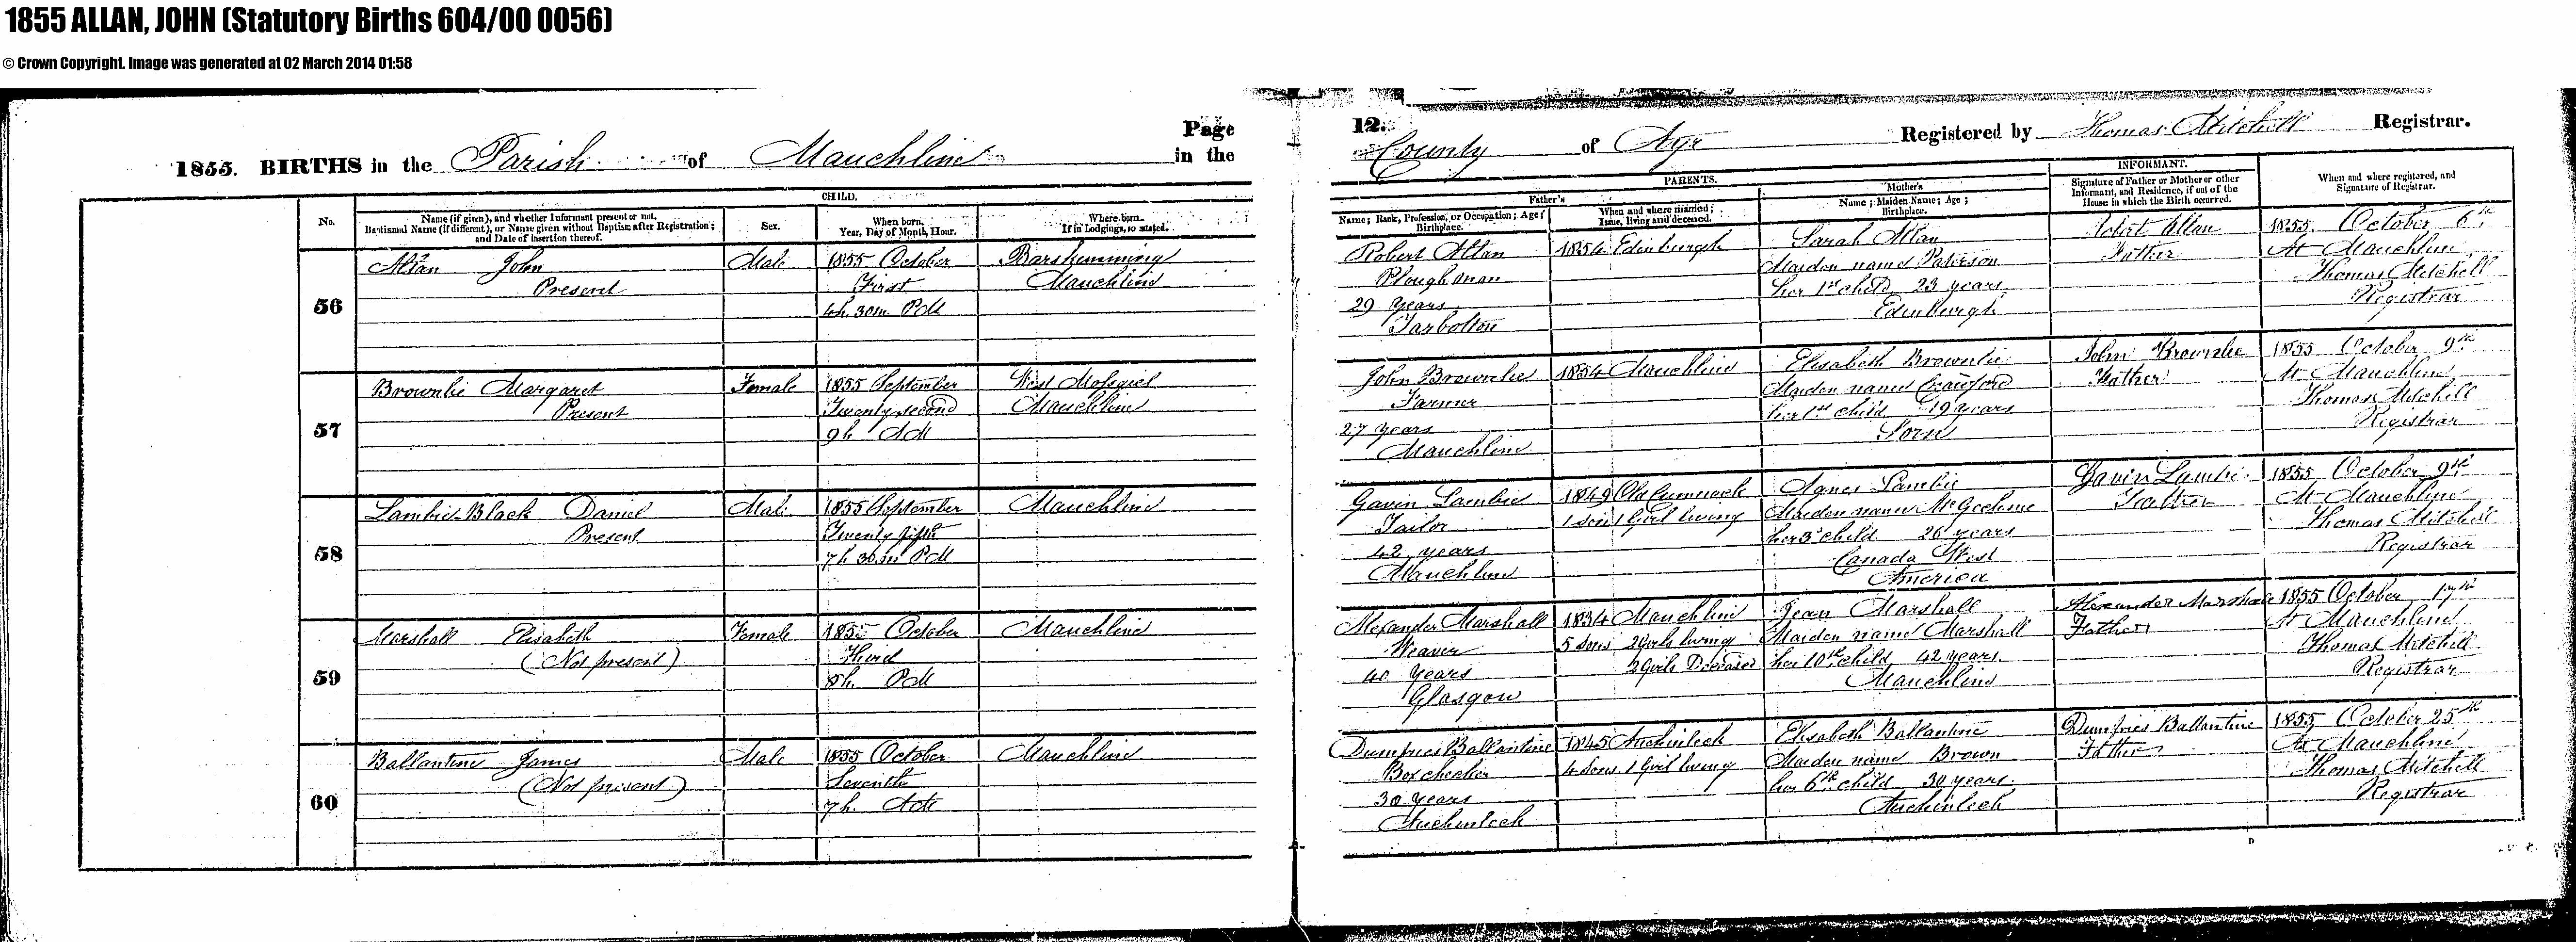 1855 ALLAN, JOHN (Statutory Births 604/00 0056)
© Crown Copyright. Image was generated at 02 March 2014 01:58
Page
12.
1855. BIRTHS in the Parish of Mauchline in the
County of Ayr Registered by Thomas Mitchell Registrar.
CHILD.
No.
Name (if given), and whether Informant present or not.
Baptismal Name (if different), or Name given without Baptism after Registration;
and Date of insertion thereof.
Sex.
When born.
Year, Day of Month, Hour.
Where born.
If in Lodgings, so stated.
PARENTS.
Father's
Name; Rank, Profession, or Occupation; Age;
Birthplace.
When and where married;
Issue, living and deceased.
Mother's
Name; Maiden Name; Age;
Birthplace.
INFORMANT.
Signature of Father or Mother or other
Informant, and Residence, if out of the
House in which the Birth occurred.
When and where registered, and
Signature of Registrar.
56
Allan John
Present
Male
1855 October
First
4h. 30m. PM
Barskimming
Mauchline
Robert Allan
Ploughman
29 years
Tarbolton
1854 Edinburgh
Sarah Allan
Maiden name Paterson
her 1st child 23 years
Edinburgh
Robert Allan
Father
1855. October 6th
At Mauchline
Thomas Mitchell
Registrar
57
Brownlie Margaret
Present
Female
1855 September
Twenty second
9h AM
West Mossgiel
Mauchline
John Brownlie
Farmer
27 years
Mauchline
1854 Mauchline
Elisabeth Brownlie
Maiden name Crawford
her 1st child 19 years
Sorn
John Brownlie
Father
1855 October 9th
At Mauchline
Thomas Mitchell
Registrar
58
Lambie Black Daniel
Present
Male
1855 September
Twenty fifth
7h 30m PM
Mauchline
Gavin Lambie
Tailor
42 years
Mauchline
1849 Old Cumnock
1 son 1 Girl living
Agnes Lambie
Maiden name McGeehine
her 3d child 26 years
Canada West
America
Gavin Lambie
Father
1855 October 9th
At Mauchline
Thomas Mitchell
Registrar
59
Marshall Elisabeth
(Not present)
Female
1855 October
Third
8h. PM
Mauchline
Alexander Marshall
Weaver
40 years
Glasgow
1834 Mauchline
5 sons 2 Girls living
2 Girls Deceased
Jean Marshall
Maiden name Marshall
her 10th child 42 years
Mauchline
Alexander Marshall
Father
1855 October 17th
At Mauchline
Thomas Mitchell
Registrar
60
Ballantine James
(Not present)
Male
1855 October
Seventh
7h. AM
Mauchline
Dumfries Ballantine
Box checker
30 years
Auchinleck
1845 Auchinleck
4 Sons 1 Girl living
Elisabeth Ballantine
Maiden name Brown
her 6th child 30 years
Auchinleck
Dumfries Ballantine
Father
1855 October 25th
At Mauchline
Thomas Mitchell
Registrar